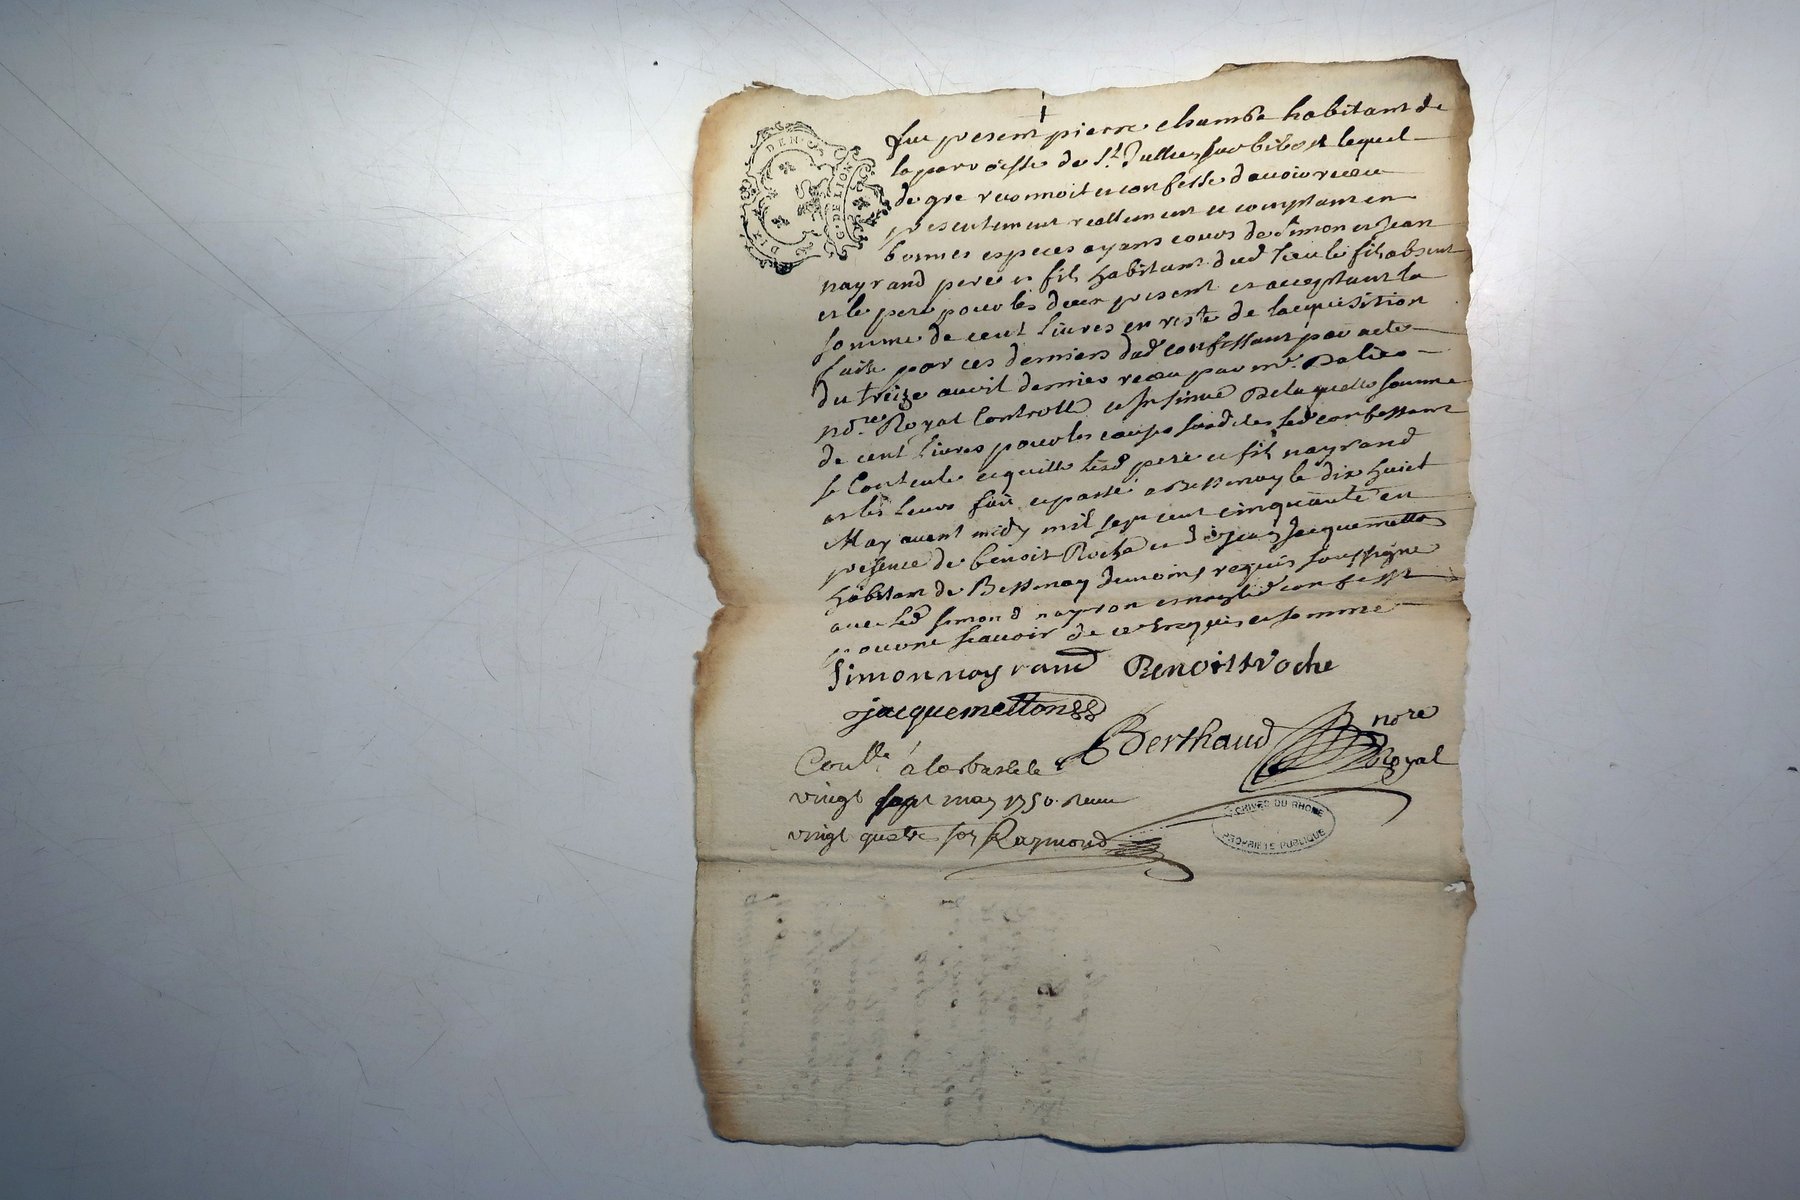 DIX DEN.
G. DE LION
fut present pierre chambe habitant de
la parroisse de St. Jullien sur bibost lequel
de gre reconnoit et confesse d'avoir receu
presentement reellement et comptant en
bonnes especes ayans cours de Simon et Jean
nayrand pere et fils habitant dud lieu le fils absent
et le pere pour les deux present et acceptant la
somme de cent livres en reste de lacquisition
faite par ces derniers dud confessant par acte
du treize avril dernier receu par me.
nore. Royal Controllé et Insinué De laquelle somme
de cent livres pour les causes susd led confessant
se Contente et quitte lesd pere et fils nayrand
et les leurs fait et passé a Bessenay le dix huict
May avant midy mil sept cent cinquante en
presence de benoit Roche et de jean Jacquemetton
habitant de Bessenay temoins requis soussigné
avec led simond nayron et non led confesst
pour ne scavoir de ce Enquis et sommé
Simon nayrand Benoist Roche
jacquemetton
Berthaud nore
Royal
Conllé à larbresle le
vingt sept may 1750. Receu
vingt quatre sols Raymond
ARCHIVES DU RHONE
PROPRIETE PUBLIQUE